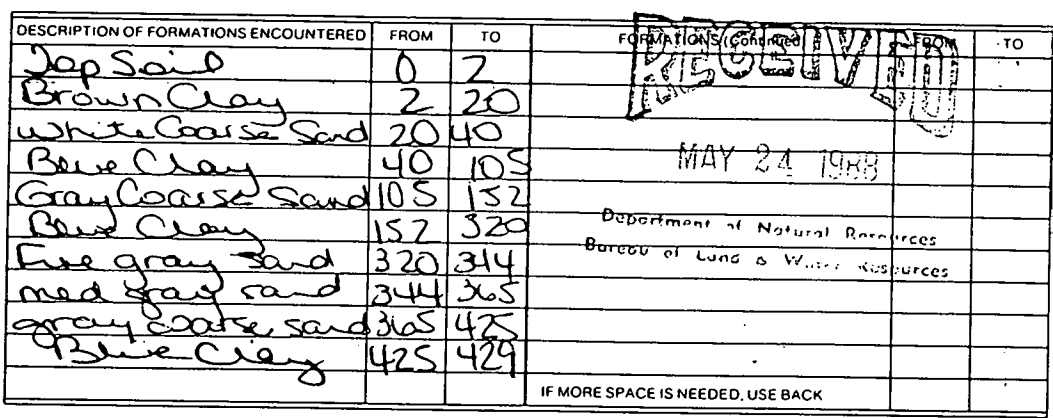 DESCRIPTION OF FORMATIONS ENCOUNTERED FROM TO FORMATIONS (Continued) FROM TO
Top Soil 0 2
Brown Clay 2 20
White Coarse Sand 20 40
Blue Clay 40 105
Gray Coarse Sand 105 152
Blue Clay 152 320
Fine gray sand 320 344
med gray sand 344 365
gray coarse sand 365 425
Blue Clay 425 429
RECEIVED
MAY 24 1988
Department of Natural Resources
Bureau of Land & Water Resources
IF MORE SPACE IS NEEDED, USE BACK